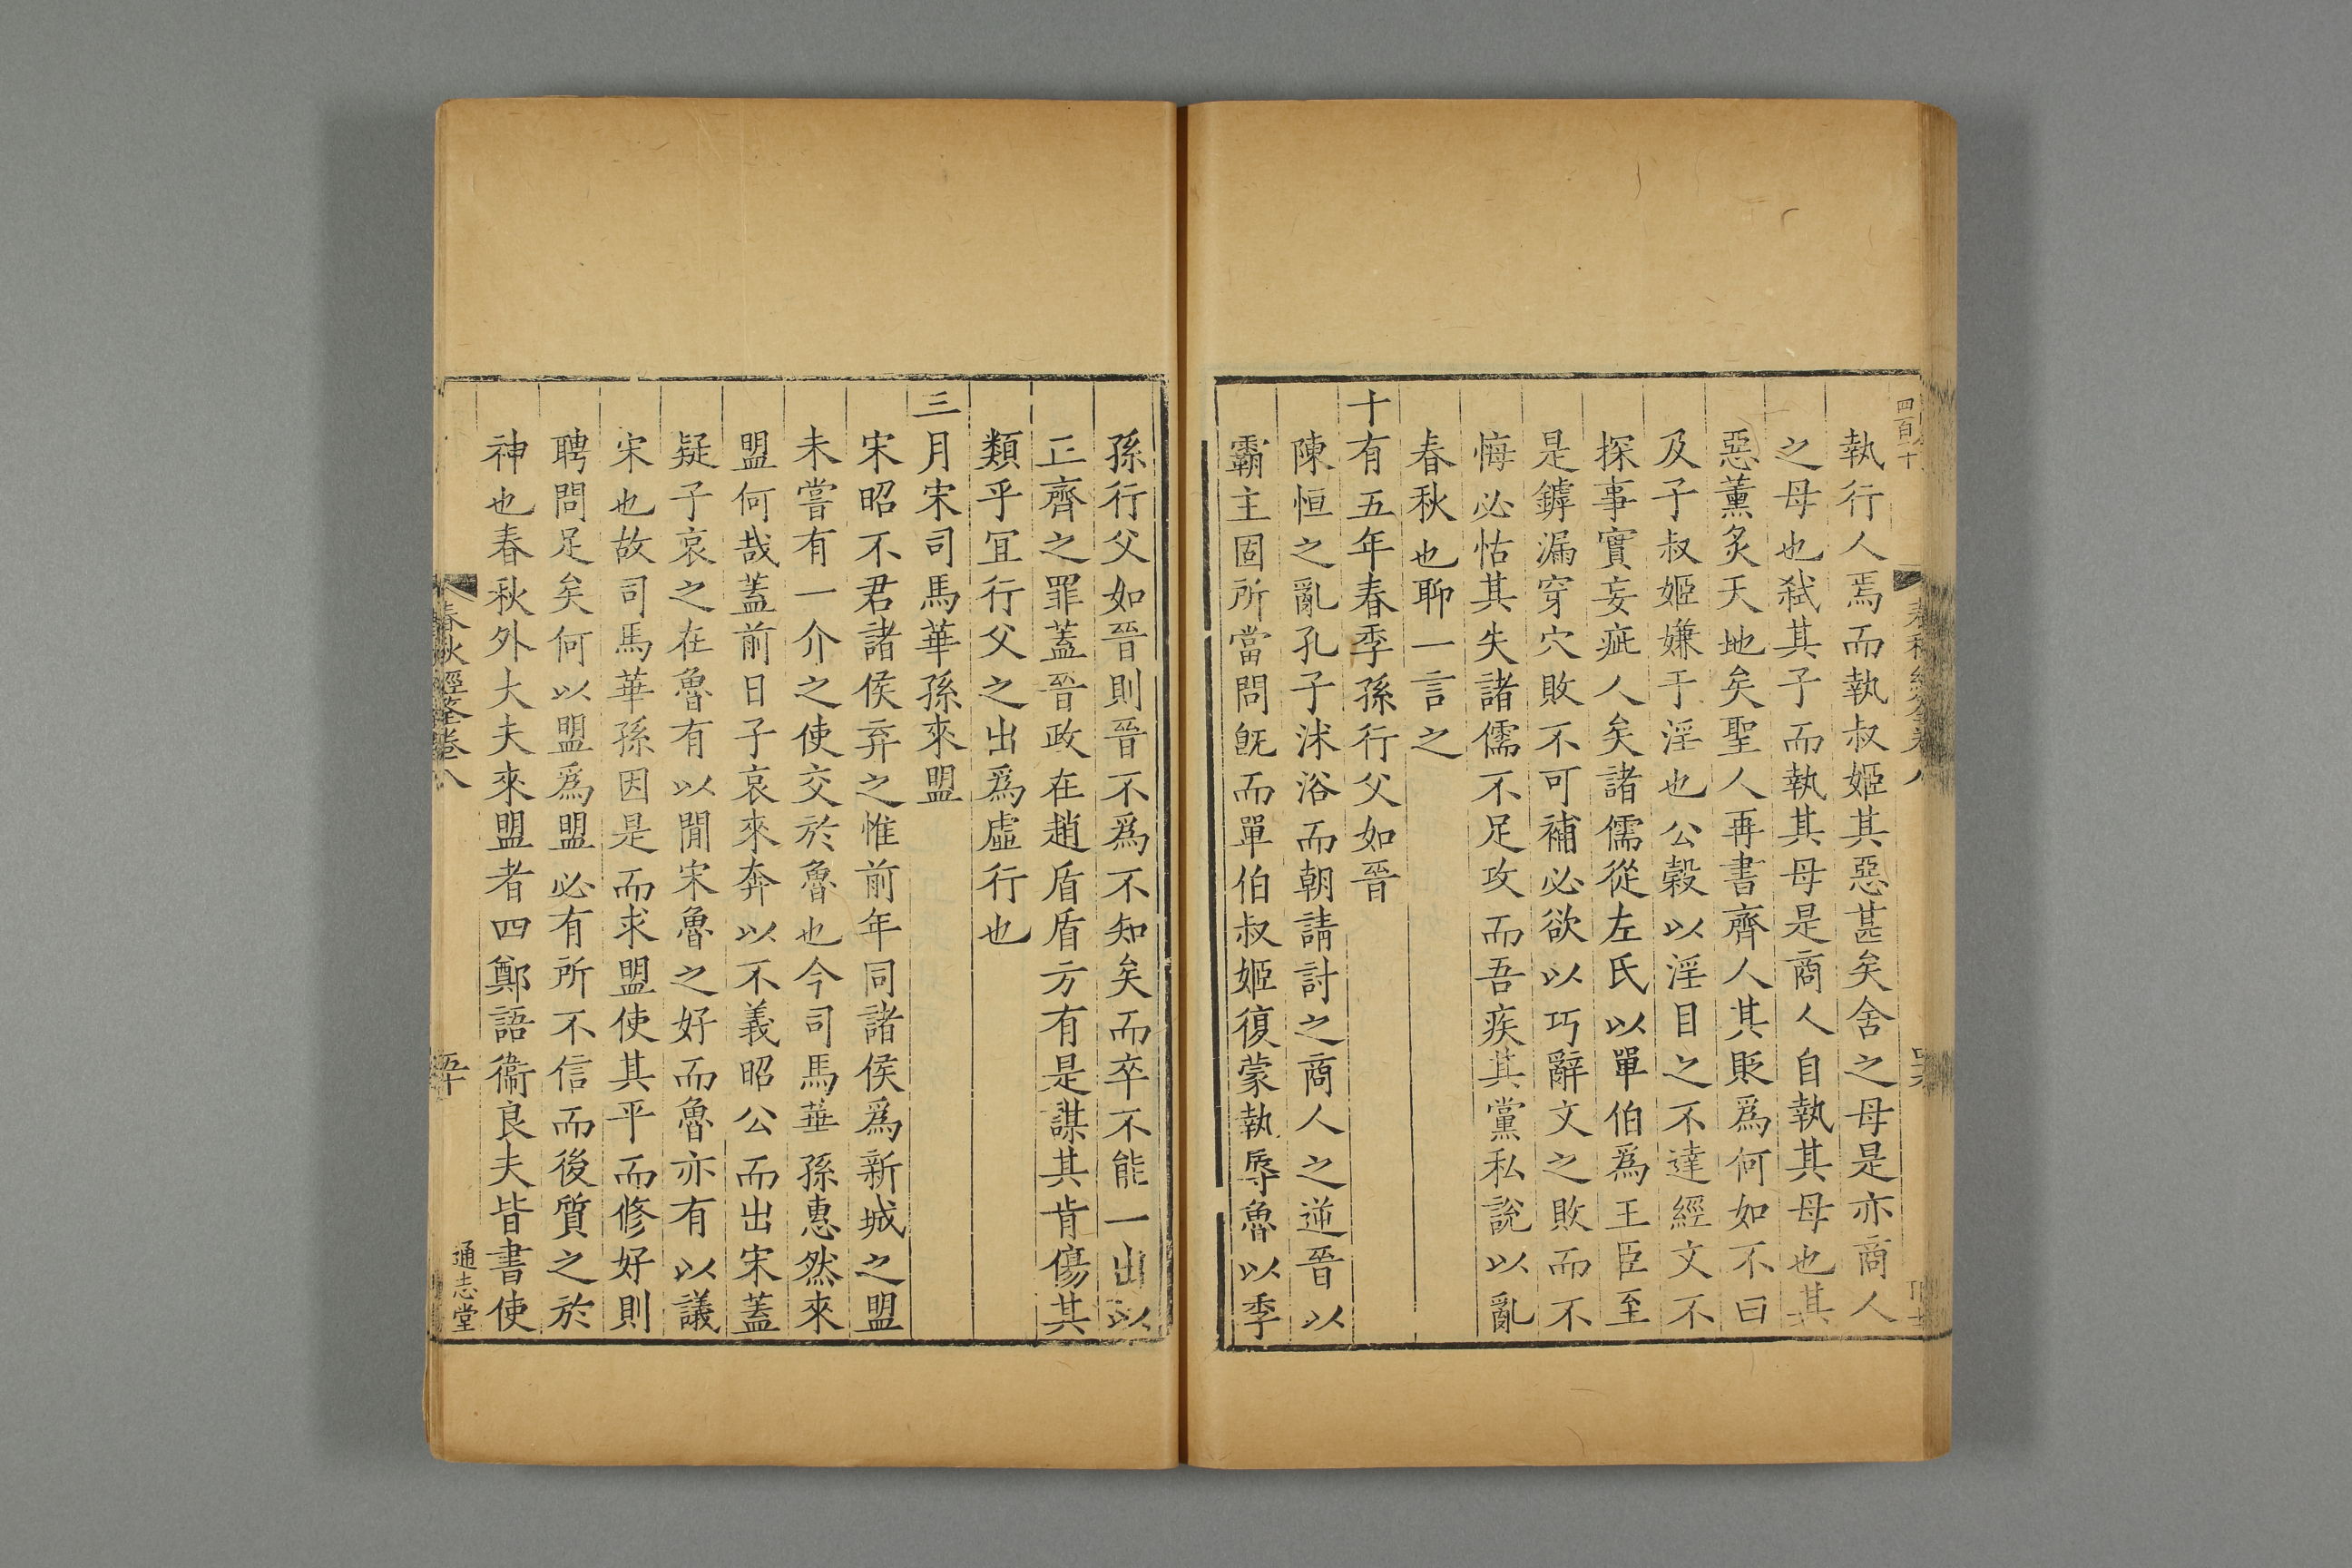 四百十
執行人焉而執叔姬其惡甚矣舍之母是亦商人
之母也弑其子而執其母是商人自執其母也其
惡薰炙天地矣聖人再書齊人其貶爲何如不曰
及子叔姬嫌于淫也公榖以淫目之不達經文不
探事實妄疵人矣諸儒從左氏以單伯爲王臣至
是罅漏穿穴敗不可補必欲以巧辭文之敗而不
悔必怙其失諸儒不足攻而吾疾其黨私說以亂
春秋也聊一言之
十有五年春季孫行父如晉
陳恒之亂孔子沐浴而朝請討之商人之逆晉以
霸主固所當問旣而單伯叔姬復蒙執辱魯以季
孫行父如晉則晉不爲不知矣而卒不能一出以
正齊之罪蓋晉政在趙盾盾方有是謀其肯傷其
類乎宜行父之出爲虛行也
三月宋司馬華孫來盟
宋昭不君諸侯弃之惟前年同諸侯爲新城之盟
未嘗有一介之使交於魯也今司馬華孫惠然來
盟何哉蓋前日子哀來奔以不義昭公而出宋蓋
疑子哀之在魯有以閒宋魯之好而魯亦有以議
宋也故司馬華孫因是而求盟使其平而修好則
聘問足矣何以盟爲盟必有所不信而後質之於
神也春秋外大夫來盟者四鄭語衞良夫皆書使
春秋經筌卷八
五十
通志堂